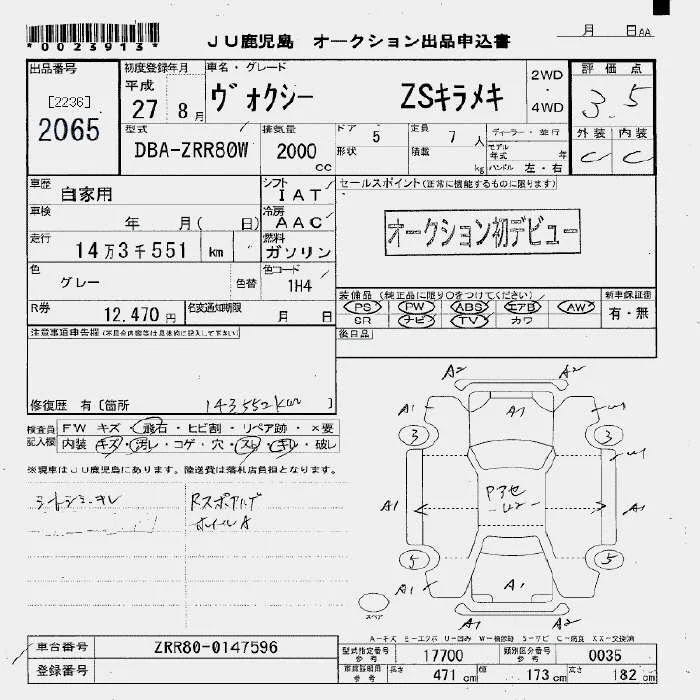 *0023913*
JU鹿児島 オークション出品申込書
月 日AA
出品番号
[2236]
2065
初度登録年月
平成
27 8月
車名・グレード
ヴォクシー ZSキラメキ
2WD
・
4WD
評価点
3.5
外装 内装
C C
型式
DBA-ZRR80W
排気量
2000
cc
ドア 5
形状
定員 7 人
積載 kg
ディーラー・並行
モデル
年式 年
ハンドル 左・右
車歴
自家用
シフト
IAT
セールスポイント(正常に機能するものに限ります)
車検
年 月( 日)
冷房
AAC
オークション初デビュー
走行
14万3千551 km
燃料
ガソリン
色
グレー
色替
色コード
1H4
R券
12.470円
名変通知期限
月 日
装備品(純正品に限り○をつけてください)
PS PW ABS エアB AW
SR ナビ TV カワ
新車保証書
有・無
後日品
注意事項申告欄
修復歴 有〔箇所 〕
143552km
検査員
記入欄
FW キズ・飛石・ヒビ割・リペア跡・×要
内装 キズ・汚レ・コゲ・穴・スレ・キレ・破レ
※現車はJU鹿児島にあります。陸送費は落札店負担となります。
A2 A2
A1 A1
3 3
A1 A1
5 5
A1 A1
スペア
A-キズ E-エクボ U-凹み W-補修跡 S-サビ C-腐食 XX-交換済
車台番号
ZRR80-0147596
登録番号
型式指定番号
参考
17700
類別区分番号
参考
0035
長さ
471 cm
幅
173 cm
高さ
182 cm